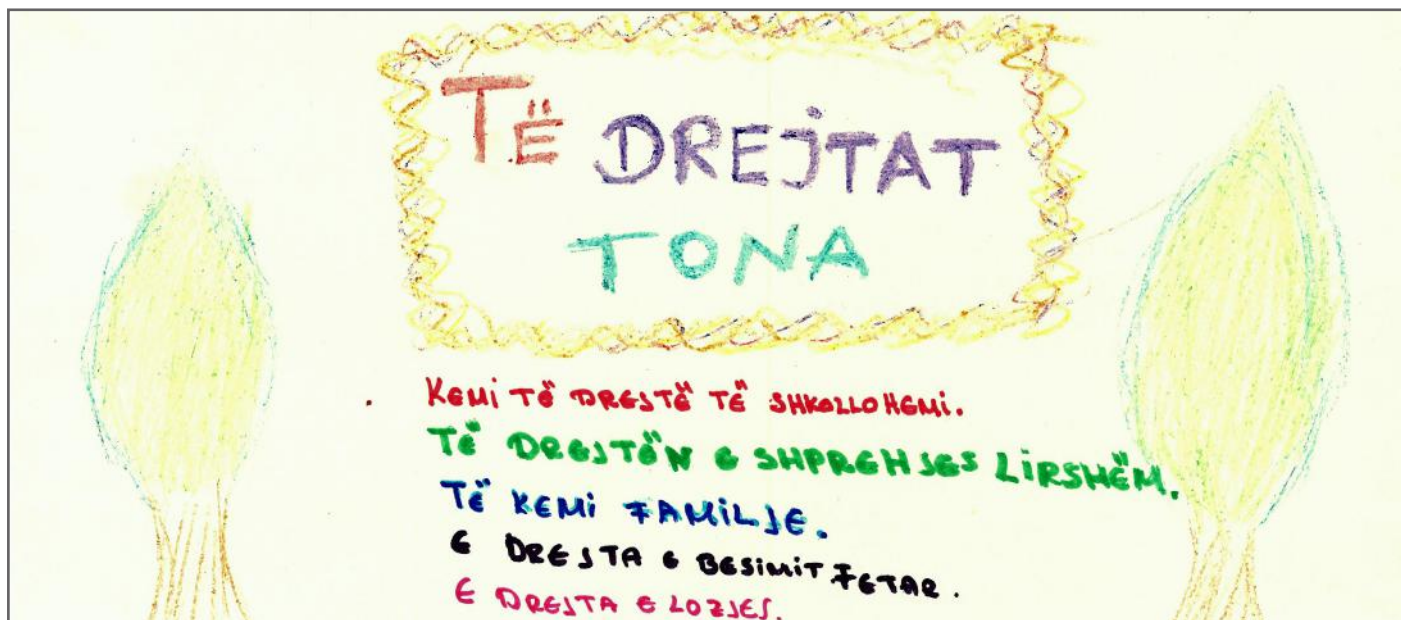 TË DREJTAT
TONA
KEMI TË DREJTË TË SHKOLLOHEMI.
TË DREJTËN E SHPREHJES LIRSHËM.
TË KEMI FAMILJE.
E DREJTA E BESIMIT FETAR.
E DREJTA E LOZJES.